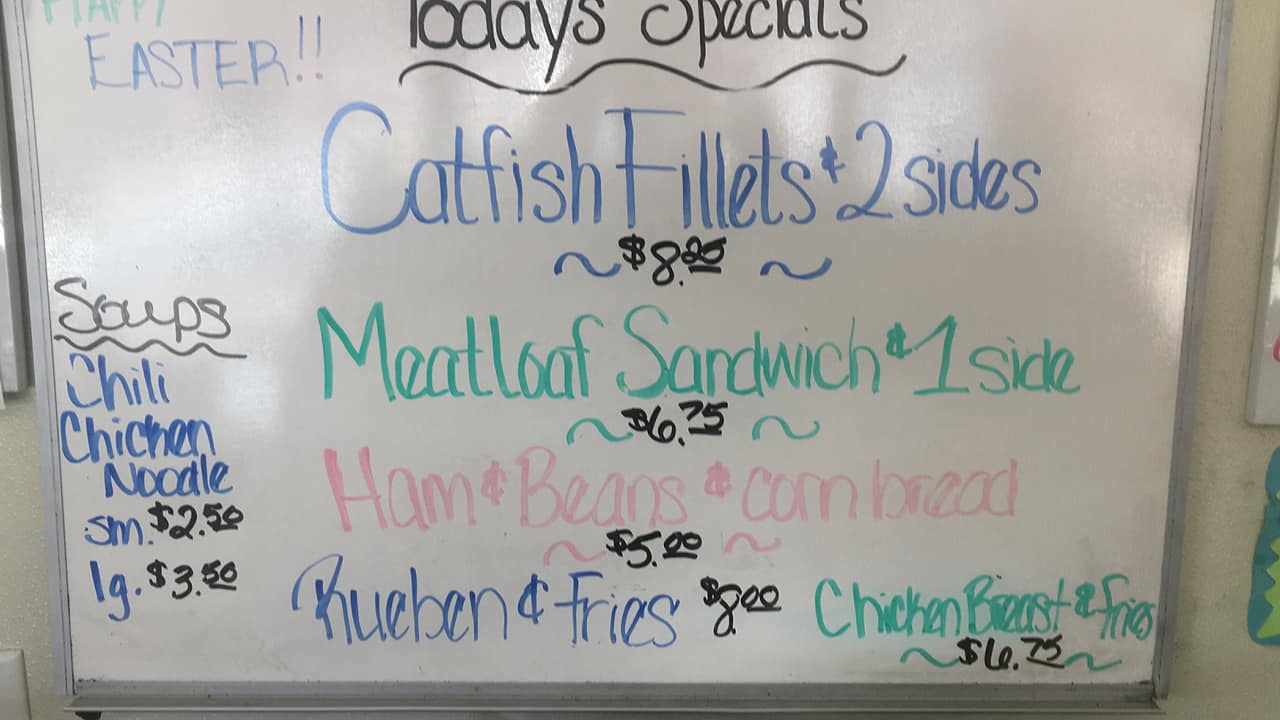 HAPPY
EASTER!!
Todays Specials
Catfish Fillets & 2 sides
$8.25
Meatloaf Sandwich & 1 side
$6.75
Ham & Beans & cornbread
$5.00
Rueben & Fries $8.00
Chicken Breast & fries
$6.75
Soups
Chili
Chicken
Noodle
sm. $2.50
lg. $3.50